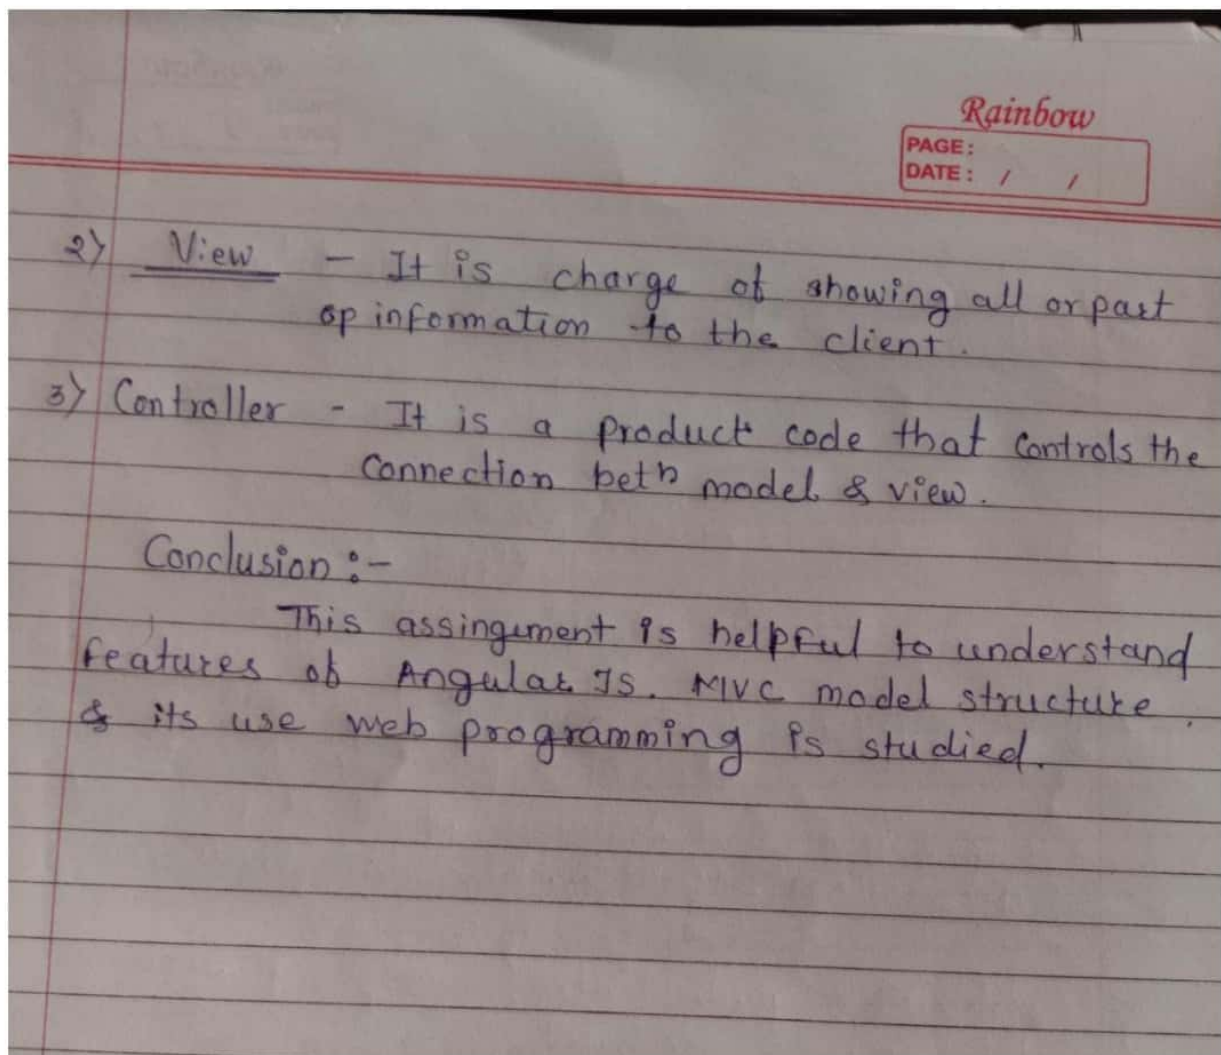 Rainbow
PAGE:
DATE: / /
2) View - It is charge of showing all or part
op information to the client.
3) Controller - It is a product code that controls the
connection betn model & view.
Conclusion :-
This assingement is helpful to understand
features of Angular JS. MVC model structure
& its use web programming is studied.